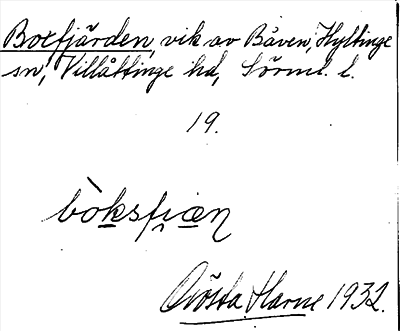 Boxfjärden, vik av Båven, Hyltinge
sn, Villåttinge hd, Sörml. l.
19.
bòksfjæn
Gösta Harne 1932.